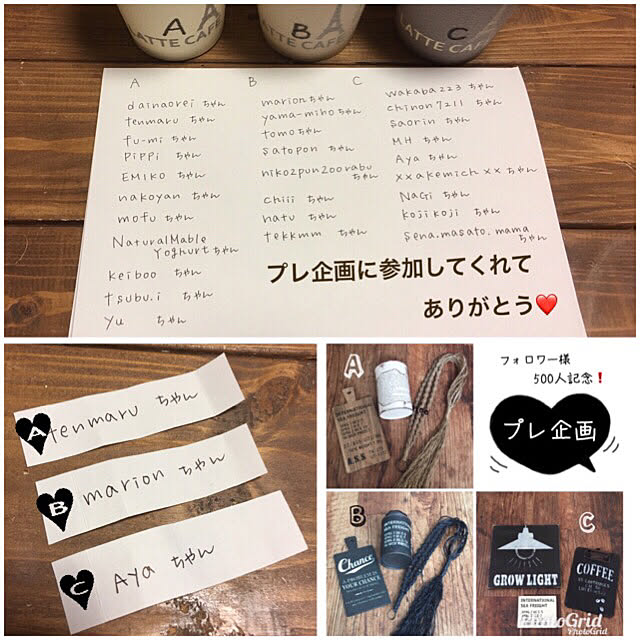 A
LATTE CAFE
B
LATTE CAFE
C
LATTE CAFE
A
dainaorei ちゃん
tenmaru ちゃん
fu-mi ちゃん
PiPPi ちゃん
EMIKO ちゃん
nakoyan ちゃん
mofu ちゃん
NaturalMable
Yoghurtちゃん
keiboo ちゃん
tsubu.i ちゃん
yu ちゃん
B
marionちゃん
yama-mihoちゃん
tomoちゃん
satopon ちゃん
niko2pun2oorabu
ちゃん
chiii ちゃん
natu ちゃん
tekkmm ちゃん
C
wakaba223 ちゃん
chinon7211 ちゃん
saorin ちゃん
MH ちゃん
Aya ちゃん
xxakemichxxちゃん
NaGi ちゃん
kojikoji ちゃん
sena.masato.mama
ちゃん
プレ企画に参加してくれて
ありがとう❤️
A tenmaru ちゃん
B marion ちゃん
C Aya ちゃん
A
INTERNATIONAL
SEA FREIGHT
フォロワー様
500人記念❗
プレ企画
B
Chance
YOUR CHANCE
INTERNATIONAL
SEA FREIGHT
C
GROW LIGHT
COFFEE
INTERNATIONAL
SEA FREIGHT
PhotoGrid